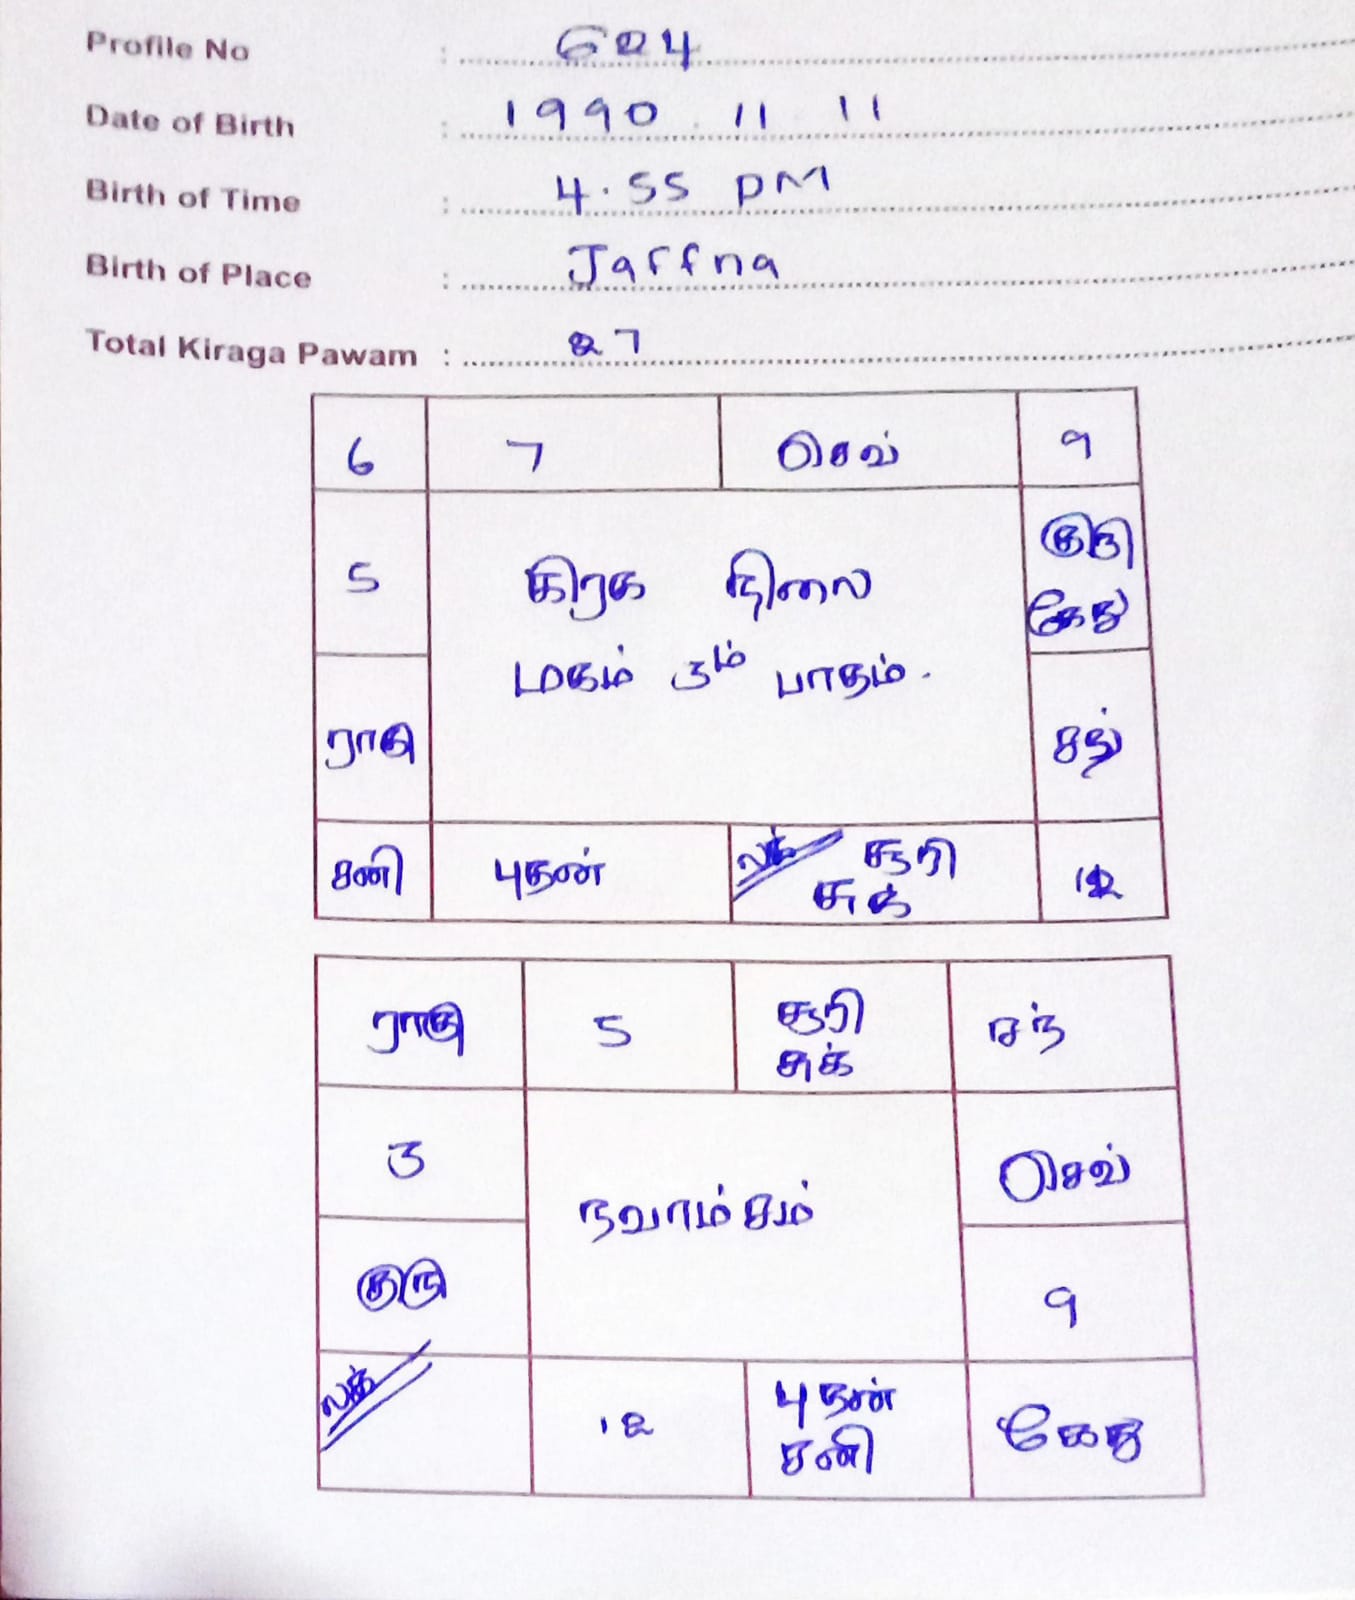 Profile No : 624
Date of Birth : 1990 . 11 . 11
Birth of Time : 4.55 PM
Birth of Place : Jaffna
Total Kiraga Pawam : 27
6 7 செவ் 9
5 கிரக நிலை குரு கேது
மகம் 3ம் பாதம்.
ராகு சந்
சனி புதன் லக் சூரி சுக் 12
ராகு 5 சூரி சுக் சந்
3 நவாம்சம் செவ்
குரு 9
லக் 12 புதன் சனி கேது